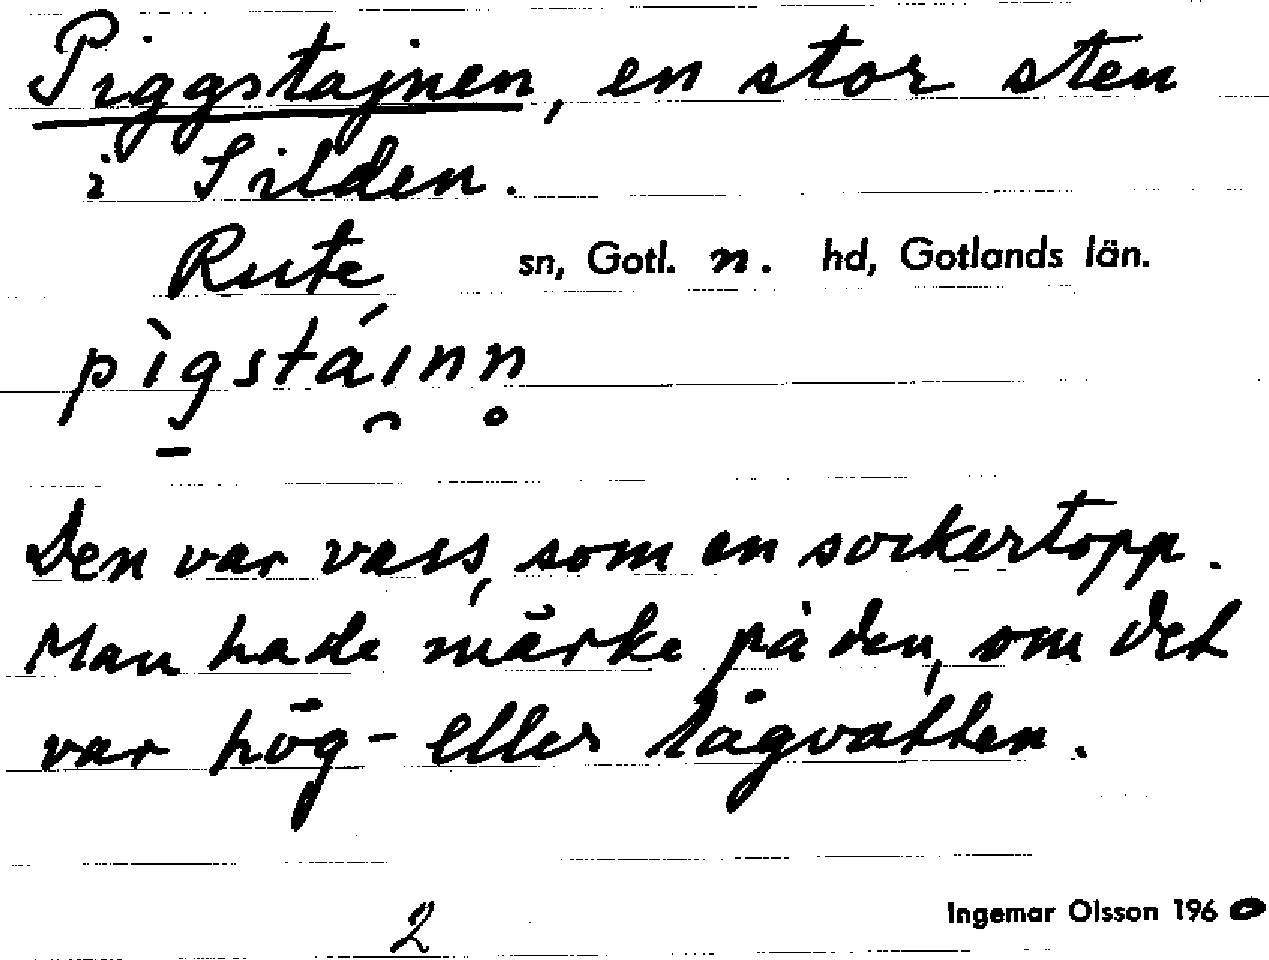 Piggstajnen, en stor sten
i Silden.
Rute sn, Gotl. n. hd, Gotlands län.
pìgstáınn̥
Den var vass, som en sockertopp.
Man hade märke på den, om det
var hög- eller lågvatten.
2
Ingemar Olsson 1960